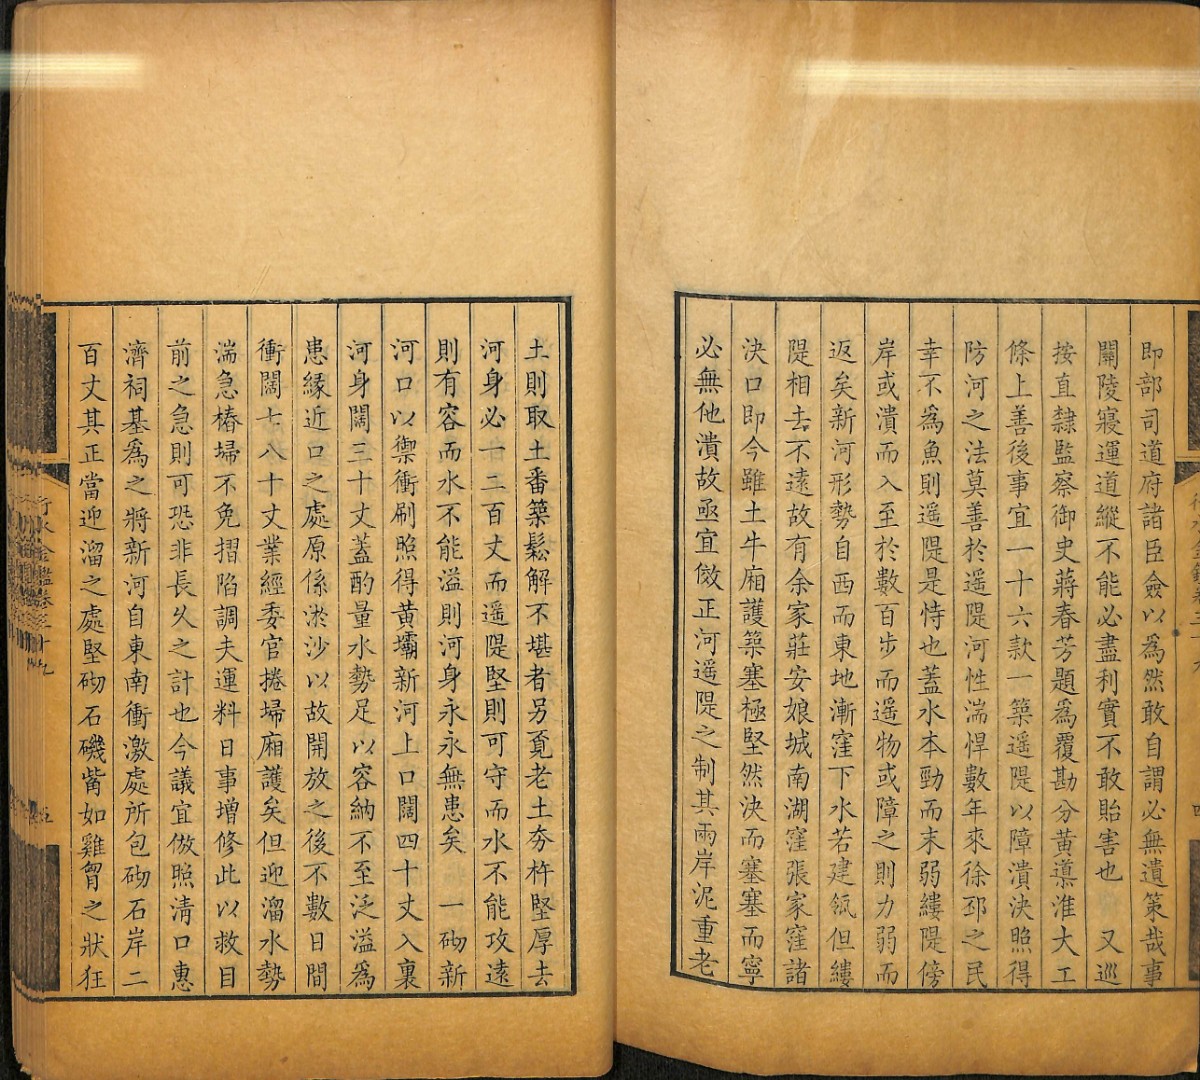 即部司道府諸臣僉以為然敢自謂必無遺策哉事
關陵寢運道縱不能必盡利實不敢貽害也　又巡
按直隸監察御史蔣春芳題為覆勘分黃導淮大工
條上善後事宜一十六款一築遥隄以障潰決照得
防河之法莫善於遥隄河性湍悍數年來徐邳之民
幸不為魚則遥隄是恃也蓋水本勁而末弱縷隄傍
岸或潰而入至於數百步而遥物或障之則力弱而
返矣新河形勢自西而東地漸窪下水若建瓴但縷
隄相去不遠故有余家莊安娘城南湖窪張家窪諸
決口即今雖土牛廂護築塞極堅然決而塞塞而寧
必無他潰故亟宜倣正河遥隄之制其兩岸泥重老
土則取土番築鬆解不堪者另覔老土夯杵堅厚去
河身必一二百丈而遥隄堅則可守而水不能攻遠
則有容而水不能溢則河身永永無患矣　一砌新
河口以禦衝刷照得黃壩新河上口闊四十丈入裏
河身闊三十丈蓋酌量水勢足以容納不至泛溢為
患緣近口之處原係淤沙以故開放之後不數日間
衝闊七八十丈業經委官捲埽廂護矣但迎溜水勢
湍急樁埽不免摺陷調夫運料日事增修此以救目
前之急則可恐非長久之計也今議宜倣照清口惠
濟祠基為之將新河自東南衝激處所包砌石岸二
百丈其正當迎溜之處堅砌石磯觜如雞胷之狀狂
行水金鑑卷三十九